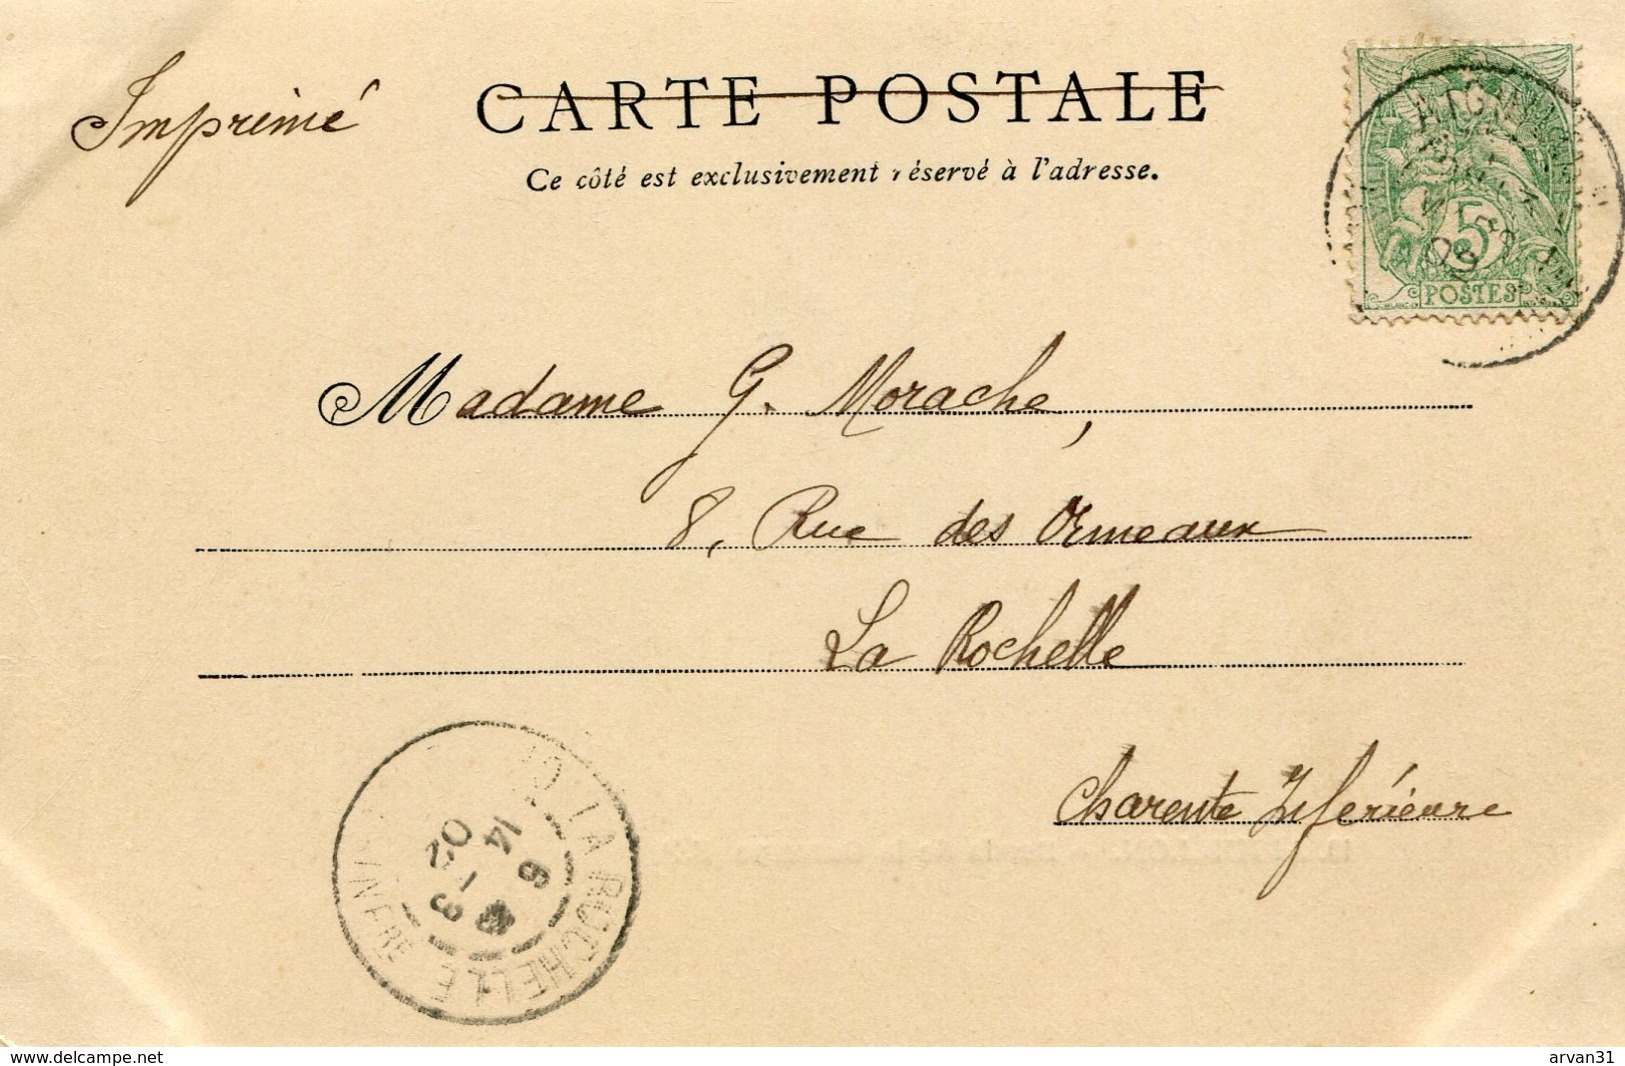 Imprimé
CARTE POSTALE
Ce côté est exclusivement réservé à l'adresse.
5
POSTES
Madame G. Morache,
8, Rue des Ormeaux
La Rochelle
Charente Inférieure
LA ROCHELLE
14
6
02
www.delcampe.net
arvan31